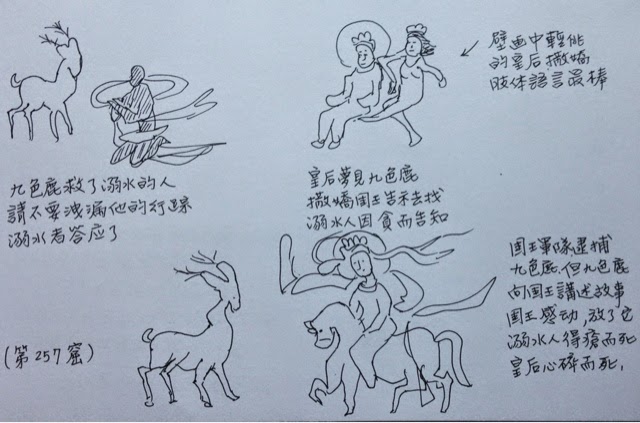 九色鹿救了溺水的人
請不要洩漏他的行踪
溺水者答应了
壁画中輕佻
的皇后撒嬌
肢体語言最棒
皇后夢見九色鹿
撒嬌国王告示去找
溺水人因貪而告知
(第257窟)
国王軍隊逮捕
九色鹿.但九色鹿
向国王講述故事
国王感动,放了它
溺水人得瘡而死
皇后心碎而死.